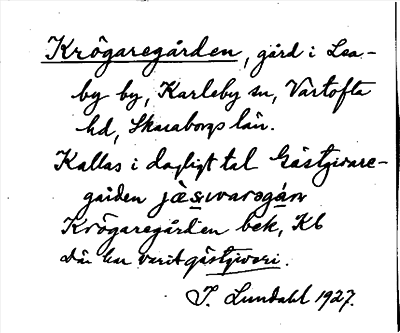 Krögaregården, gård i Lea-
by by, Karleby sn, Vartofta
hd, Skaraborgs län.
Kallas i dagligt tal Gästgivare-
gården jὲsivarəgán
Krögaregården bek, Kb
Där har varit gästgiveri.
J. Lundahl 1927.